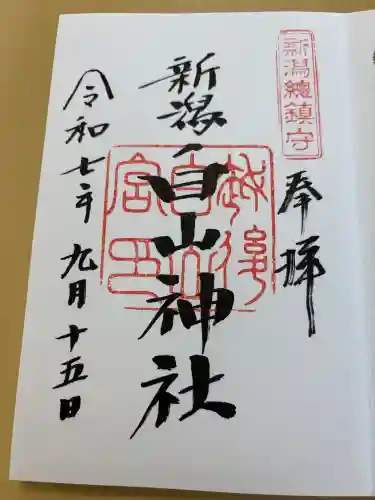 新潟總鎮守
奉拝
越後
白山
宮印
新潟白山神社
令和七年九月十五日